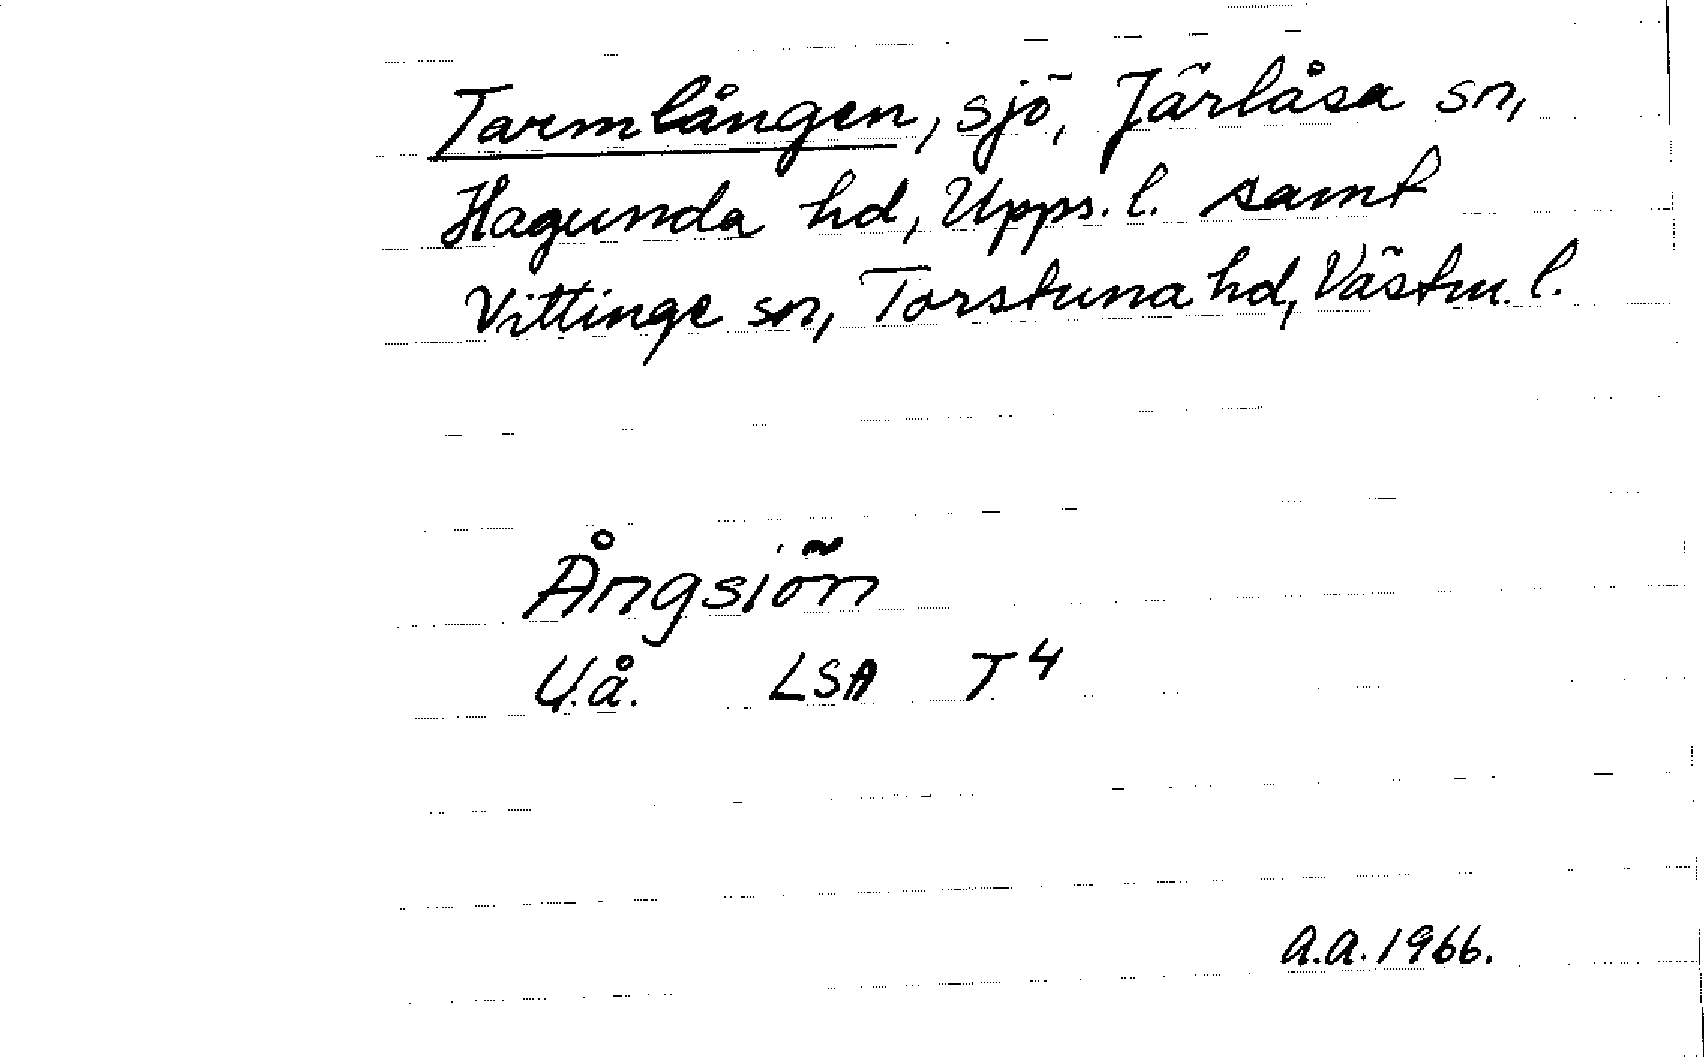 Tarmlången, sjö, Järlåsa sn,
Hagunda hd, Upps. l. samt
Vittinge sn, Torstuna hd, Västm. l.
Ångsiön
U.å. LSA T4
A.A. 1966.